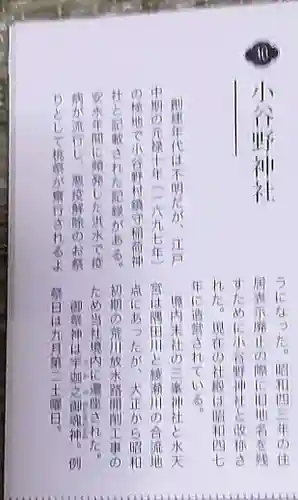 10
小谷野神社
創建年代は不明だが、江戸
中期の元禄十年（一六九七年）
の検地で小谷野村鎮守稲荷神
社と記載された記録がある。
安永年間に頻発した洪水で疫
病が流行し、悪疫解除のお祭
りとして桃祭が斎行されるよ
うになった。昭和四三年の住
居表示廃止の際に旧地名を残
すために小谷野神社と改称さ
れた。現在の社殿は昭和四七
年に造営されている。
境内末社の三峯神社と水天
宮は隅田川と綾瀬川の合流地
点にあったが、大正から昭和
初期の荒川放水路開削工事の
ため当社境内に遷座された。
御祭神は宇迦之御魂神。例
祭日は九月第二土曜日。